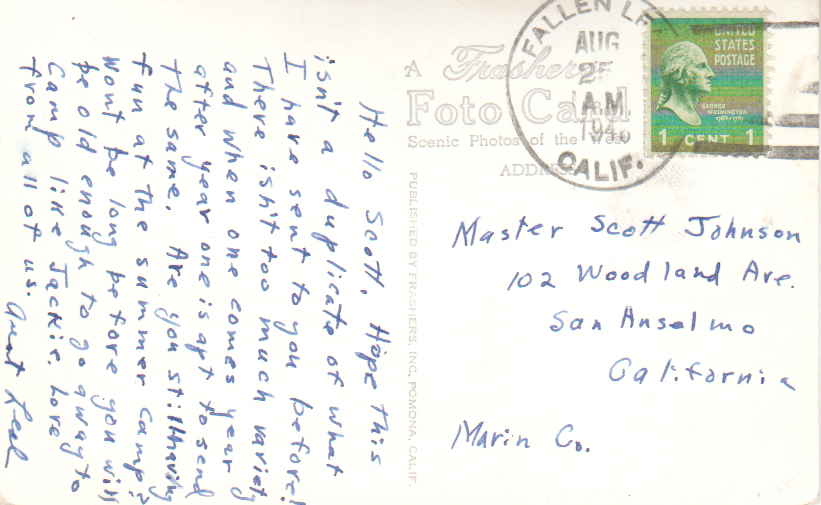 Hello Scott, Hope this
isn't a duplicate of what
I have sent to you before!
There isn't too much variety
and when one comes year
after year one is apt to send
the same. Are you still having
fun at the summer camp?
Wont be long before you will
be old enough to go away to
Camp like Jackie. Love
from all of us.
Aunt
A Frashers
Foto Card
Scenic Photos of the West
ADDRESS
PUBLISHED BY FRASHERS, INC., POMONA, CALIF.
FALLEN
AUG
A.M.
CALIF.
UNITED
STATES
POSTAGE
GEORGE
WASHINGTON
1 CENT 1
Master Scott Johnson
102 Woodland Ave.
San Anselmo
California
Marin Co.